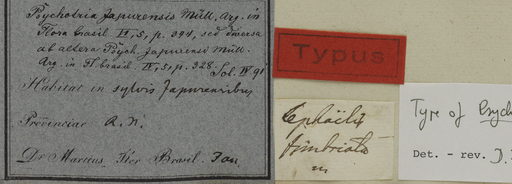 Psychotria Japurensis Müll. Arg. in
Flora brasil. IV, 5, p. 394, sed diversa
ab altera Psych. japurensi Müll.
Arg. in Fl. brasil. IV, 5, p. 328.
Habitat in sylvis Japurensibus
Provinciae R. N.
Dr Martius. Iter Brasil.
Typus
Cephaëlis
fimbriata
m
Type of Psych
Det. - rev. D.